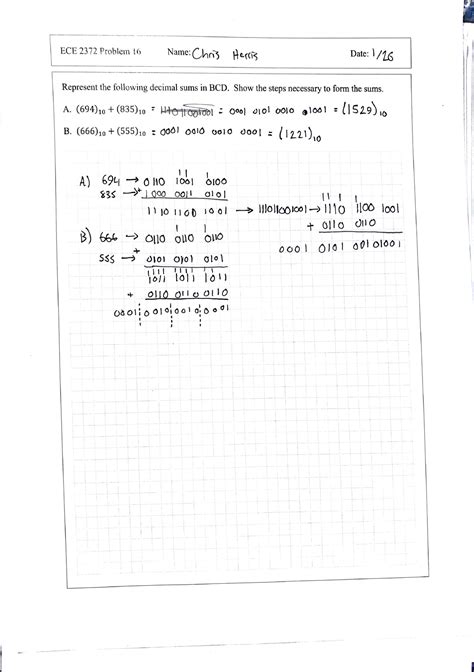 ECE 2372 Problem 16 Name: Chris Herris Date: 1/26
Represent the following decimal sums in BCD. Show the steps necessary to form the sums.
A. (694)₁₀ + (835)₁₀ = = 0001 0101 0010 1001 = (1529)₁₀
B. (666)₁₀ + (555)₁₀ = 0001 0010 0010 0001 = (1221)₁₀
11
A) 694 → 0110 1001 0100
835 → + 1000 0011 0101
1110 1100 1001 → 111011001001 → 1110 1100 1001
11 1
+ 0110 0110
0001 0101 0010 1001
B) 666 → 0110 0110 0110
555 → + 0101 0101 0101
1111 1111 111
1011 1011 1011
+ 0110 0110 0110
0001 0010 0010 0001